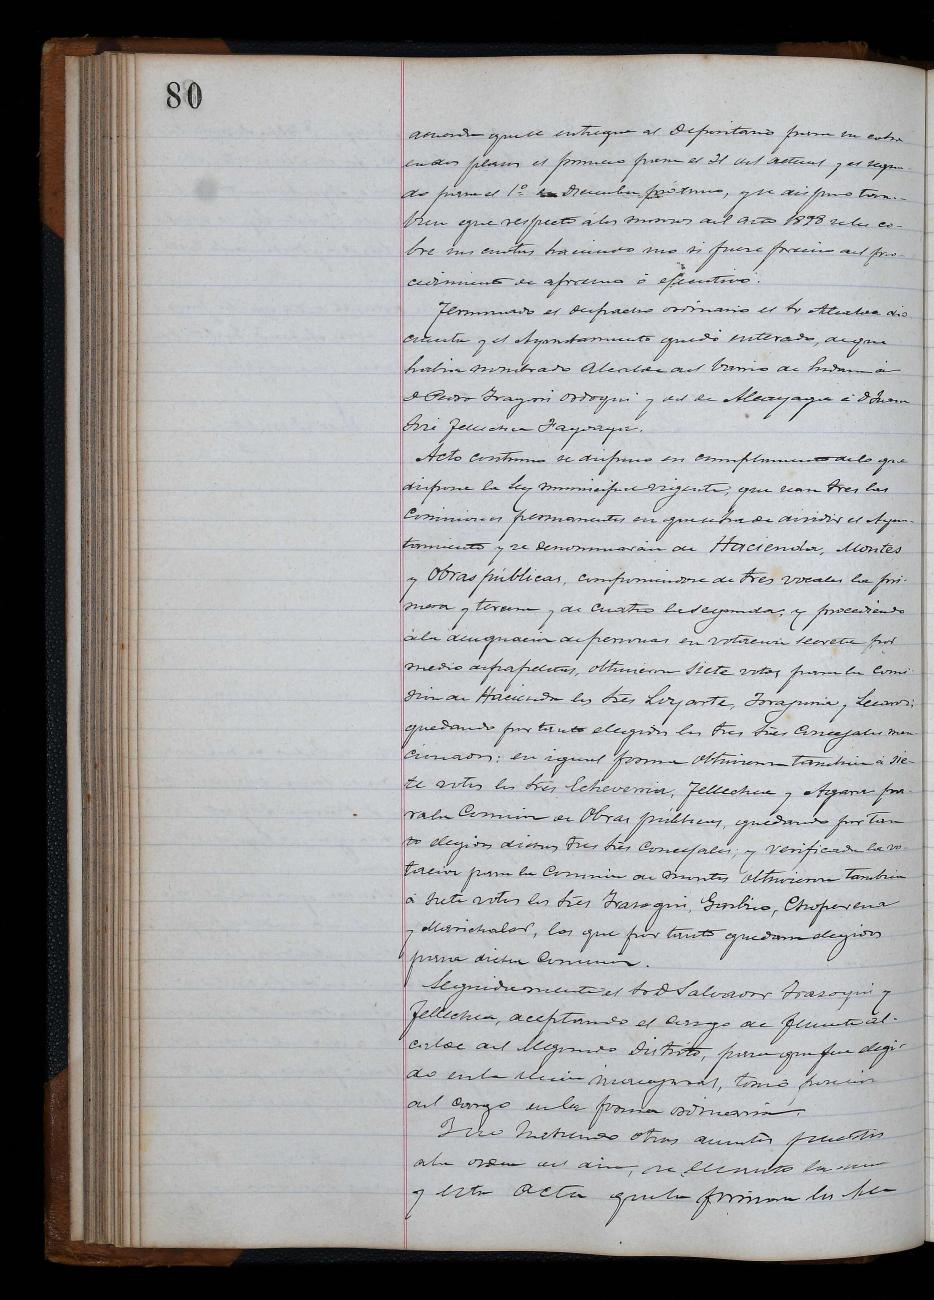 80
acuerda que se entregue al Depositario para su cobro
en dos plazos el primero para el 31 del actual y el segun-
do para el 1º de Diciembre próximo, y se dispuso tam-
bien que respecto á los morosos del año 1898 se les co-
bre sus cuotas haciendo uso si fuese preciso del pro-
cedimiento de apremio ó ejecutivo.
Terminado el despacho ordinario el Sr Alcalde dió
cuenta y el Ayuntamiento quedó enterado, de que
habia nombrado Alcalde del barrio de á
D Pedro Ordoqui y del de Alcayaga á D Juan
José Tellechea
Acto contínuo se dispuso en cumplimiento de lo que
dispone la Ley municipal vigente, que sean tres las
Comisiones permanentes en que se ha de dividir el Ayun-
tamiento y se denominarán de Hacienda, Montes
y Obras públicas, componiendose de tres vocales la pri-
mera y tercera y de cuatro la segunda; y procediendo
á la designacion de personas en votacion secreta por
medio de papeletas, obtuvieron siete votos para la Comi-
sion de Hacienda los Sres Loyarte, y
quedando por tanto elegidos los tres Sres Concejales men-
cionados: en igual forma obtuvieron tambien á sie-
te votos los Sres Echeverria, Tellechea y pa-
ra la Comision de Obras públicas, quedando por tan-
to elegidos dichos tres Sres Concejales; y verificada la vo-
tacion para la Comision de Montes obtuvieron tambien
á siete votos los Sres Irazoqui, Choperena
y Marichalar, los que por tanto quedaron elegidos
para dicha Comision.
Seguidamente el Sr D Salvador Irazoqui y
Tellechea, aceptando el cargo de Teniente al-
calde del segundo distrito, para que fue elegi-
do en la sesion inaugural, tomó posesion
del cargo en la forma ordinaria.
Y no habiendo otros asuntos puestos
á la orden del dia, se levantó la sesion
y esta acta que la firman los Se